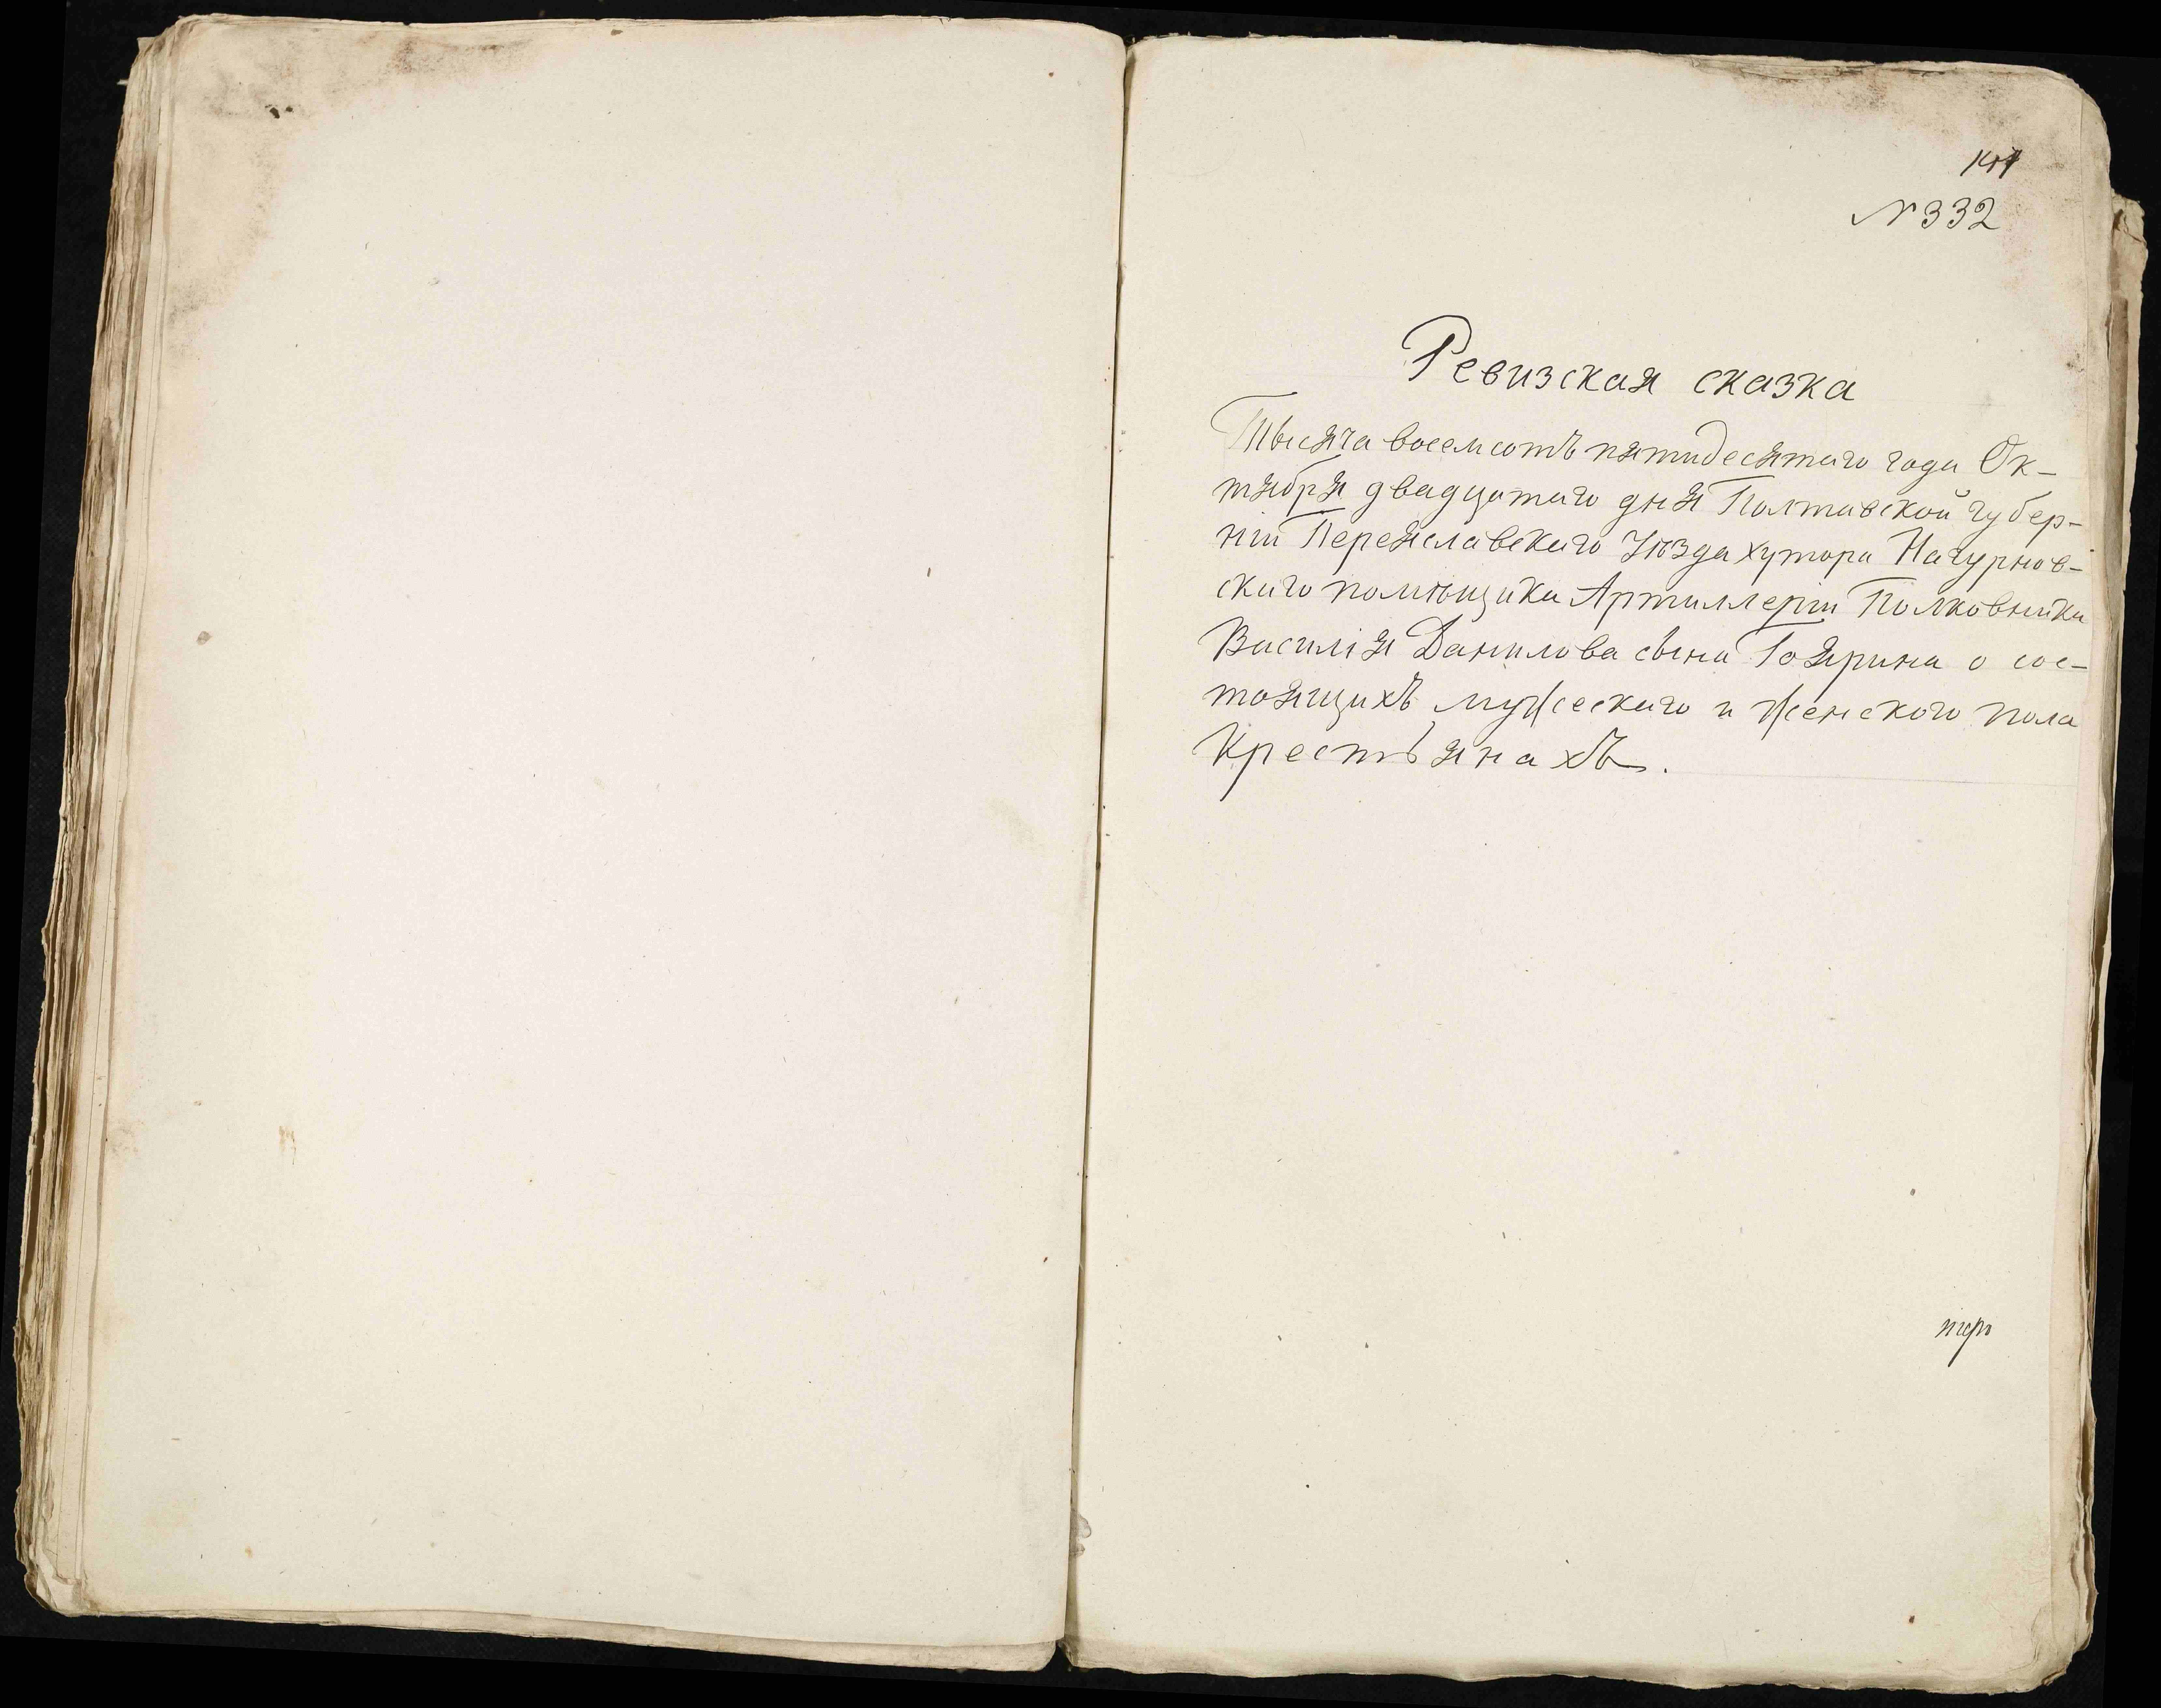 № 332
Ревизская сказка
Тысяча восемсотъ пятидесятаго года Ок-
тября двадцатаго дня Полтавской губер-
ніи Переяславскаго Уѣзда хутора
скаго помѣщика Артиллеріи Полковника
Василія Данилова сына Гоярина о сос-
тоящихъ мужескаго и женского пола
Крестьянахъ.